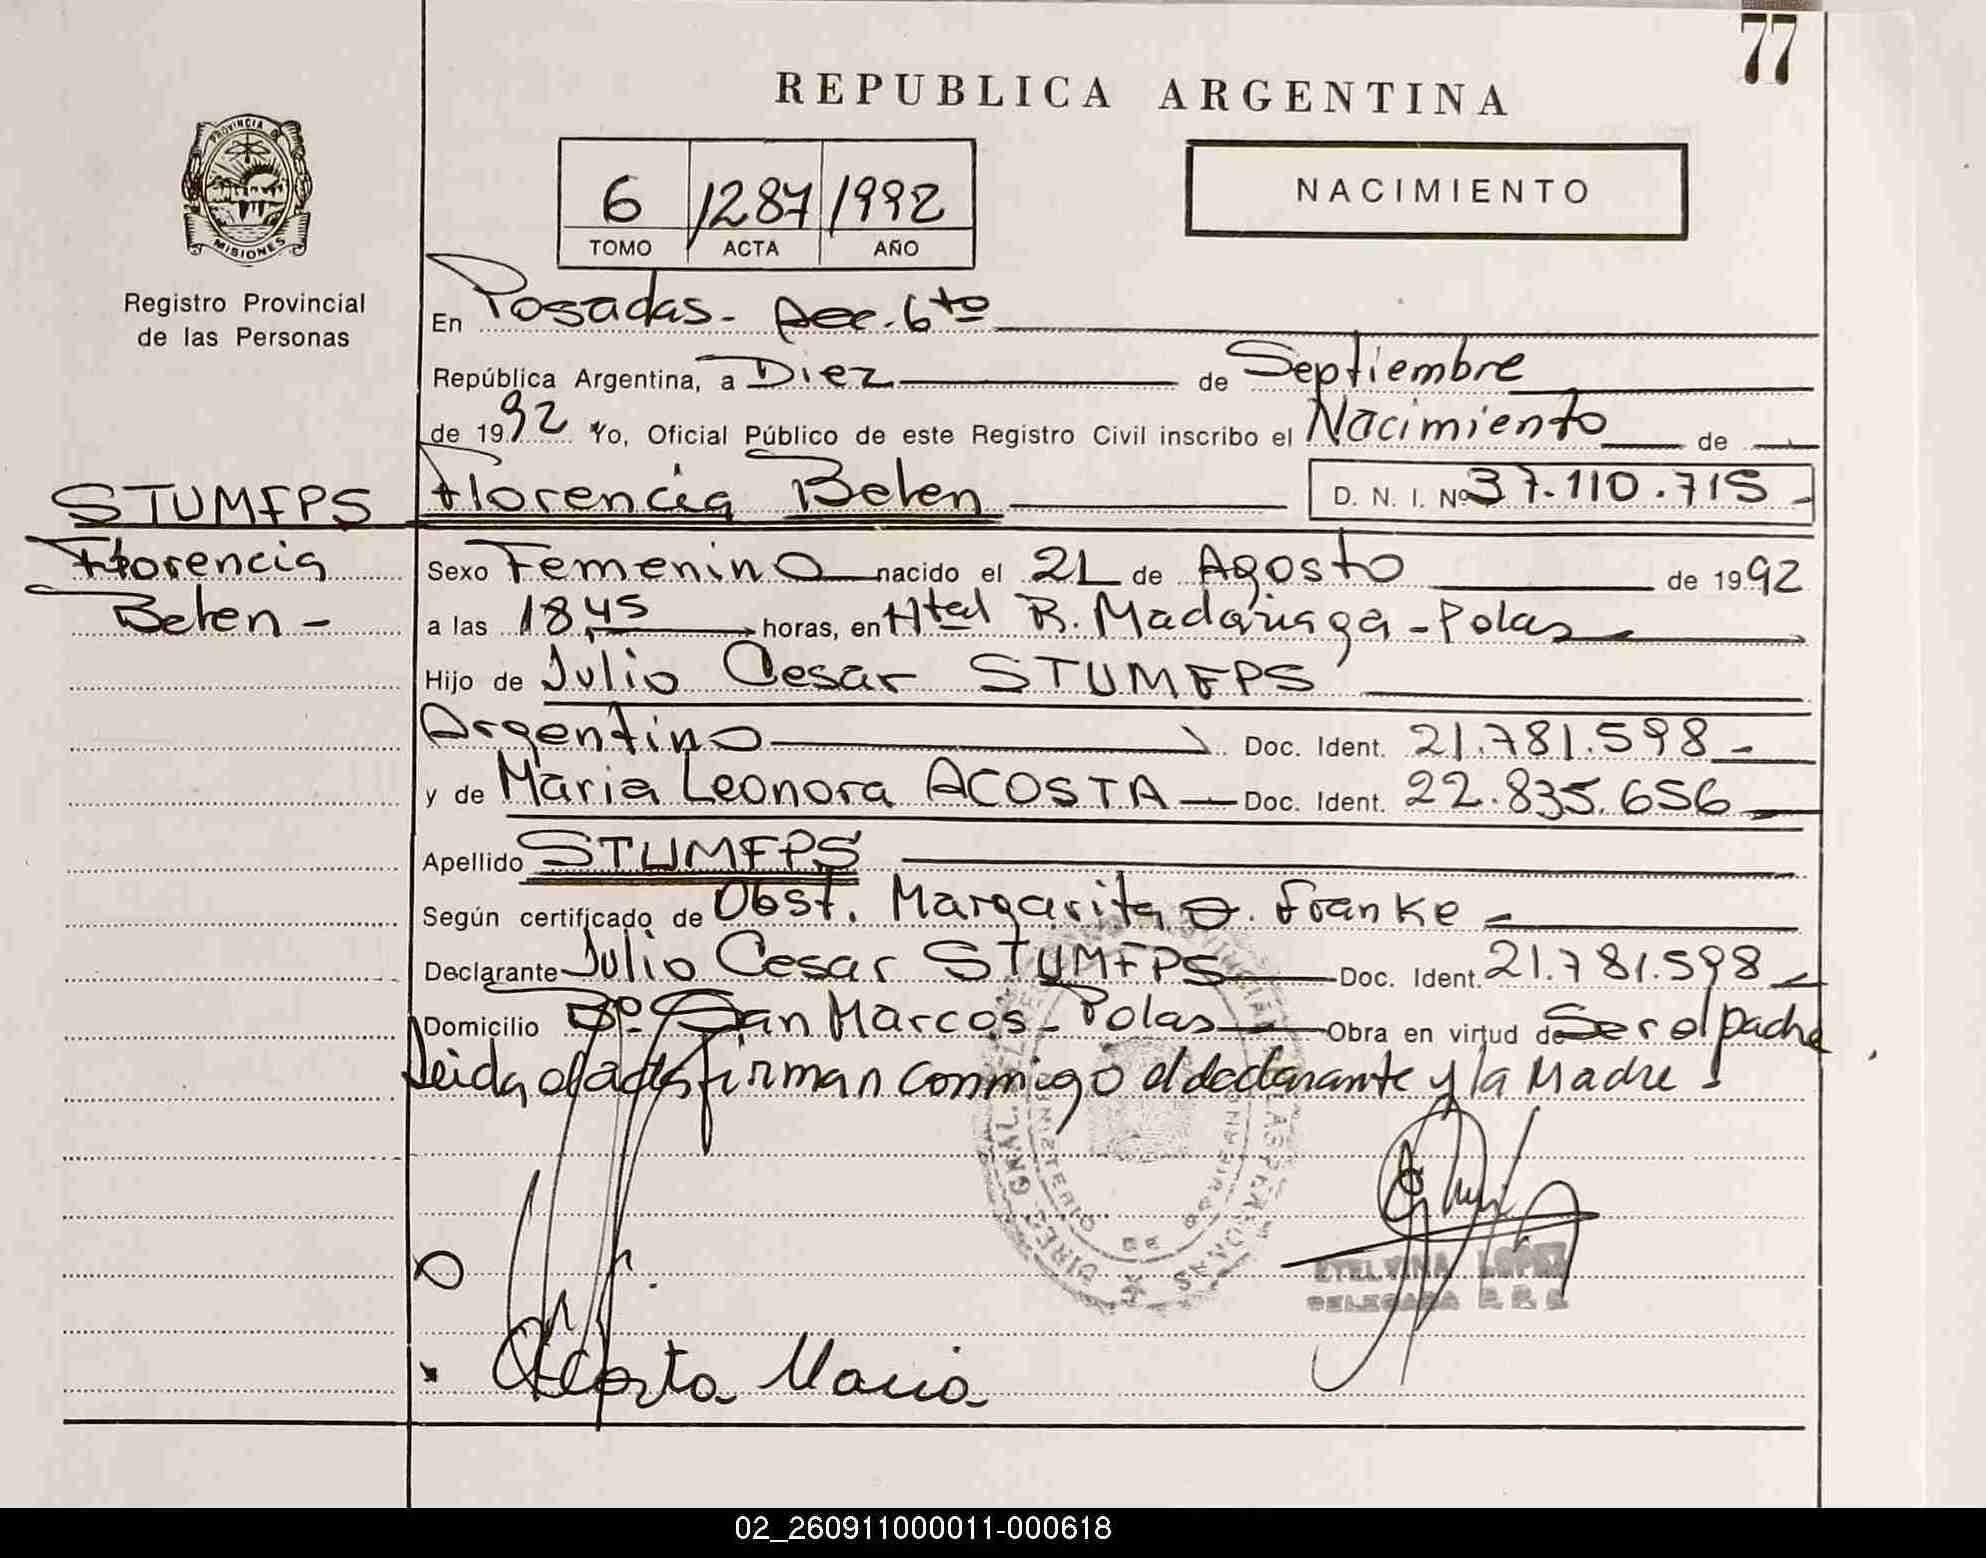 77
REPUBLICA ARGENTINA
PROVINCIA DE
MISIONES
Registro Provincial
de las Personas
6 1287 1992
TOMO ACTA AÑO
NACIMIENTO
En Posadas - Secc. 6to
República Argentina, a Diez de Septiembre
de 1992 Yo, Oficial Público de este Registro Civil inscribo el Nacimiento de
STUMFPS
Florencia
Belen -
Florencia Belen D. N. I. Nº 37.110.715 -
Sexo Femenino nacido el 21 de Agosto de 1992
a las 18,45 horas, en Htal R. Madariaga - Pdas
Hijo de Julio Cesar STUMFPS
Argentino Doc. Ident. 21.781.598 -
y de Maria Leonora ACOSTA Doc. Ident. 22.835.656
Apellido STUMFPS
Según certificado de Obst. Margarita Franke -
Declarante Julio Cesar STUMFPS Doc. Ident. 21.781.598
Domicilio Bº San Marcos - Pdas Obra en virtud de Ser el padre
Leida el acta firman conmigo el declarante y la Madre
ETELVINA LOPEZ
DELEGADA
Acosta Maria
02_260911000011-000618